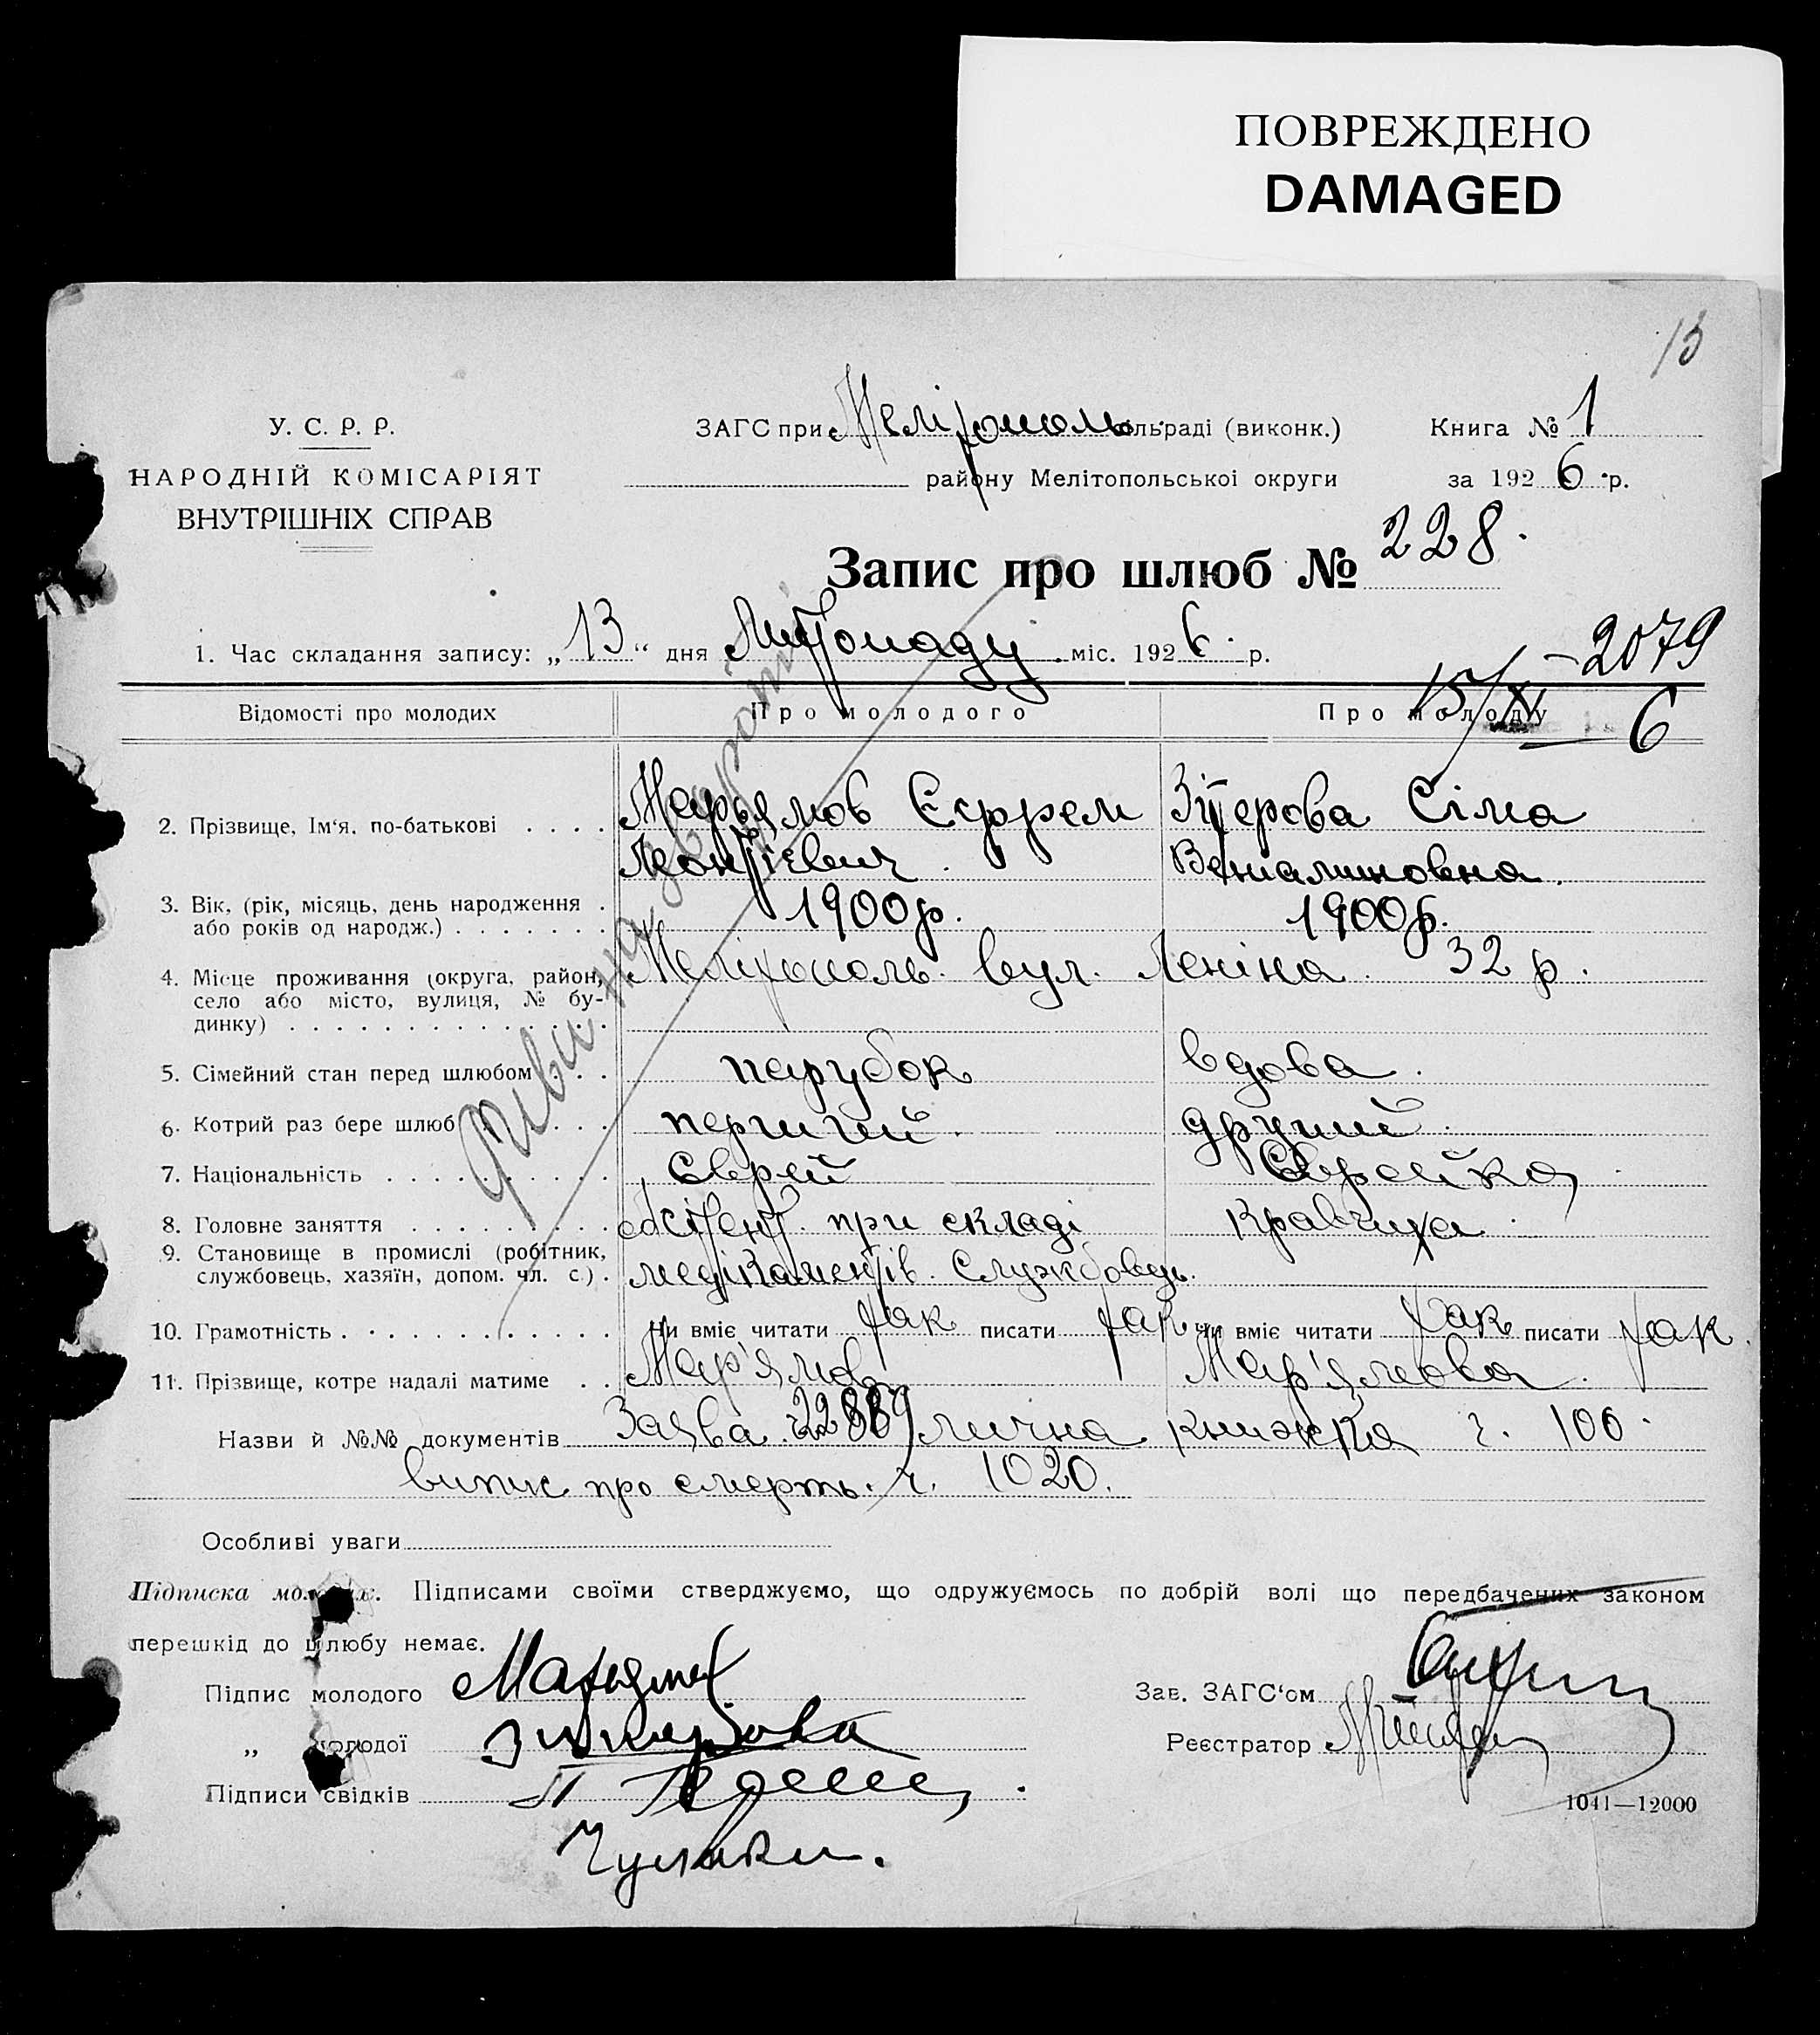 ПОВРЕЖДЕНО
DAMAGED
13
У. С. Р. Р.
НАРОДНІЙ КОМІСАРІЯТ
ВНУТРІШНІХ СПРАВ
ЗАГС при Мелітополь сільраді (виконк.)
району Мелітопольської округи
Книга № 1
за 1926 р.
Запис про шлюб № 228.
1. Час складання запису: „13“ дня Листопаду міс. 1926 р.
– 2079
15/XI 6
Відомості про молодих Про молодого Про молоду
2. Прізвище, Ім‘я, по-батькові . . . . Марьямов Єфрем Зітерова Сіма
Леонтієвич. Вениаминовна.
3. Вік, (рік, місяць, день народження . 1900р. 1900р.
або років од народж.) . . . . . . .
4. Місце проживання (округа, район, Мелітополь. вул. Леніна. 32 р.
село або місто, вулиця, № бу-
динку) . . . . . . . . . . . . . .
5. Сімейний стан перед шлюбом . . . парубок вдова.
6. Котрий раз бере шлюб . . . . перший. другий.
7. Національність . . . . . . . . . . Єврей Єврейка
8. Головне заняття . . . . . . . . . при складі Кравчиха.
9. Становище в промислі (робітник,
службовець, хазяїн, допом. чл. с.) . медікаментів. Службовець.
10. Грамотність . . . . . . . . . . . . Чи вміє читати так писати так Чи вміє читати так писати так.
11. Прізвище, котре надалі матиме . . Мар'ямов Мар'ямова.
Назви й №№ документів Заява 22889 лична книжка ч. 100.
випис про смерть. ч. 1020.
Особливі уваги
Підписка молодих. Підписами своїми стверджуємо, що одружуємось по добрій волі що передбачених законом
перешкід до шлюбу немає.
Підпис молодого
Зав. ЗАГС‘ом
„ молодої
Реєстратор
Підписи свідків
1041—12000